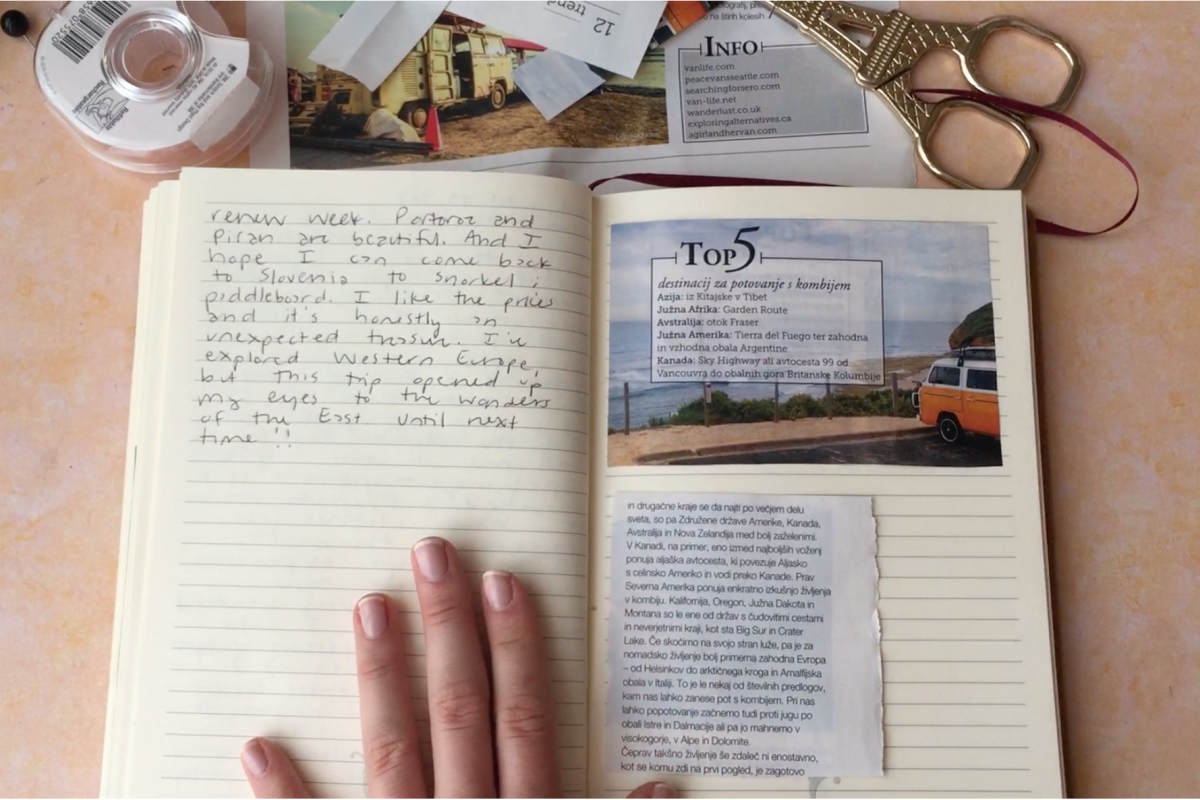 12 trend
INFO
vanlife.com
peacevansseattle.com
searchingforsero.com
van-life.net
wanderlust.co.uk
exploringalternatives.ca
agirlandhervan.com
renew week. Portoroz and
Piran are beautiful. And I
hope I can come back
to Slovenia to snorkel &
paddleboard. I like the prices
and it's honestly an
unexpected treasure. I've
explored Western Europe,
but this trip opened up
my eyes to the wonders
of the East. Until next
time!!
TOP 5
destinacij za potovanje s kombijem
Azija: iz Kitajske v Tibet
Južna Afrika: Garden Route
Avstralija: otok Fraser
Južna Amerika: Tierra del Fuego ter zahodna
in vzhodna obala Argentine
Kanada: Sky Highway ali avtocesta 99 od
Vancouvra do obalnih gora Britanske Kolumbije
in drugačne kraje se da najti po večjem delu
sveta, so pa Združene države Amerike, Kanada,
Avstralija in Nova Zelandija med bolj zaželenimi.
V Kanadi, na primer, eno izmed najboljših voženj
ponuja aljaška avtocesta, ki povezuje Aljasko
s celinsko Ameriko in vodi preko Kanade. Prav
Severna Amerika ponuja enkratno izkušnjo življenja
v kombiju. Kalifornija, Oregon, Južna Dakota in
Montana so le ene od držav s čudovitimi cestami
in neverjetnimi kraji, kot sta Big Sur in Crater
Lake. Če skočimo na svojo stran luže, pa je za
nomadsko življenje bolj primerna zahodna Evropa
– od Helsinkov do arktičnega kroga in Amalfijska
obala v Italiji. To je le nekaj od številnih predlogov,
kam nas lahko zanese pot s kombijem. Pri nas
lahko popotovanje začnemo tudi proti jugu po
obali Istre in Dalmacije ali pa jo mahnemo v
visokogorje, v Alpe in Dolomite.
Čeprav takšno življenje še zdaleč ni enostavno,
kot se komu zdi na prvi pogled, je zagotovo